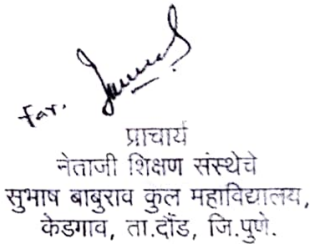 For.
प्राचार्य
नेताजी शिक्षण संस्थेचे
सुभाष बाबुराव कुल महाविद्यालय,
केडगाव, ता.दौंड, जि.पुणे.